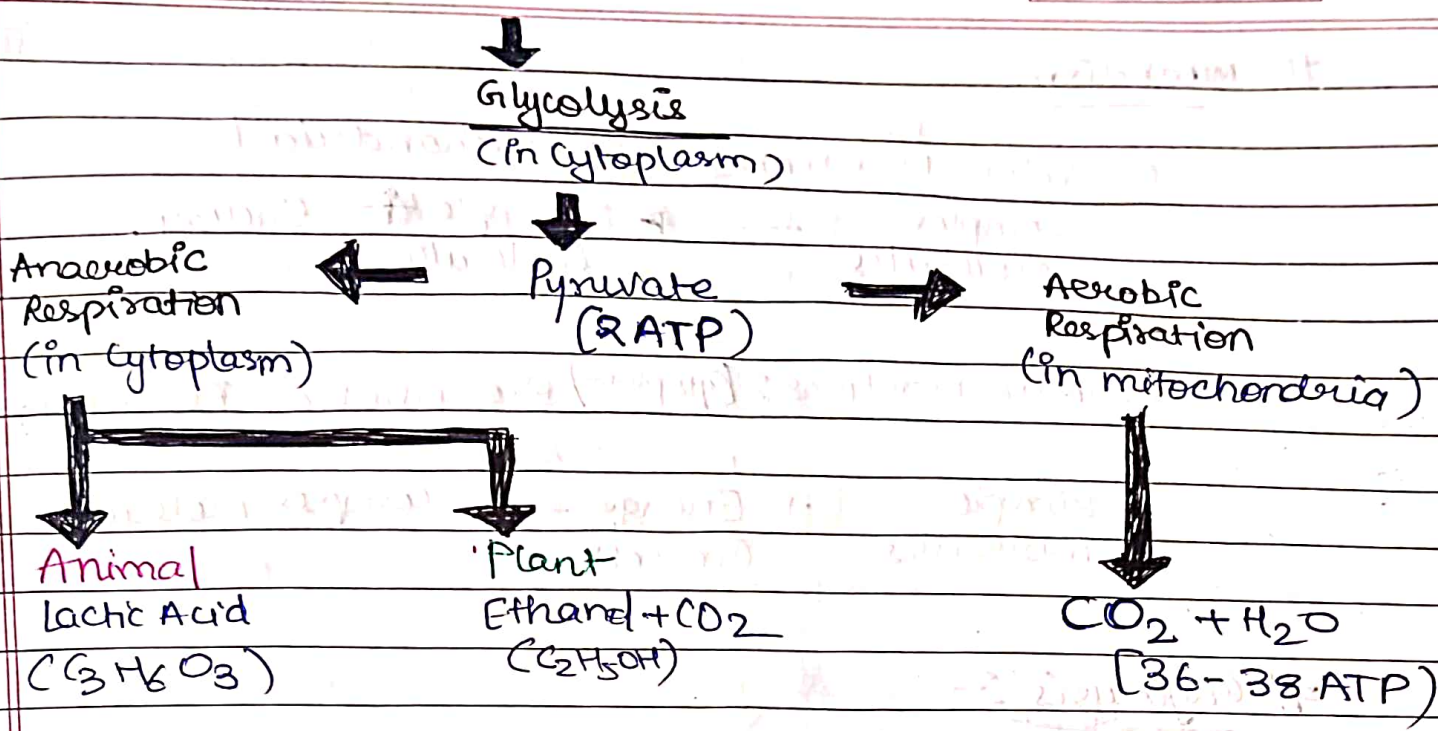 Glycolysis
(in Cytoplasm)
Anaerobic
Respiration
(in Cytoplasm)
Pyruvate
(2 ATP)
Aerobic
Respiration
(in mitochondria)
Animal
Lactic Acid
(C3H6O3)
Plant
Ethanol + CO2
(C2H5OH)
CO2 + H2O
[36-38 ATP)